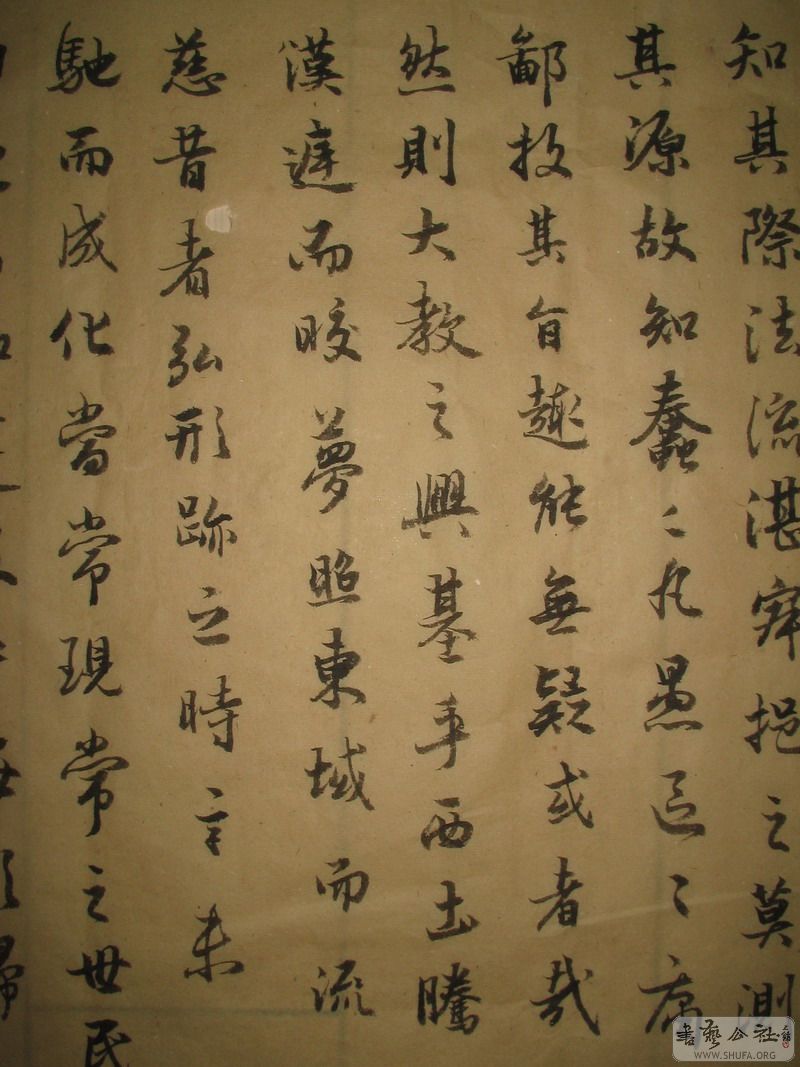 知其際法流湛寂挹之莫測
其源故知蠢〻凡愚區〻庸
鄙投其旨趣能無疑或者哉
然則大教之興基乎西土騰
漢庭而晈夢照東域而流
慈昔者弘形跡之時言未
馳而成化當常現常之世民
書藝公社
WWW.SHUFA.ORG